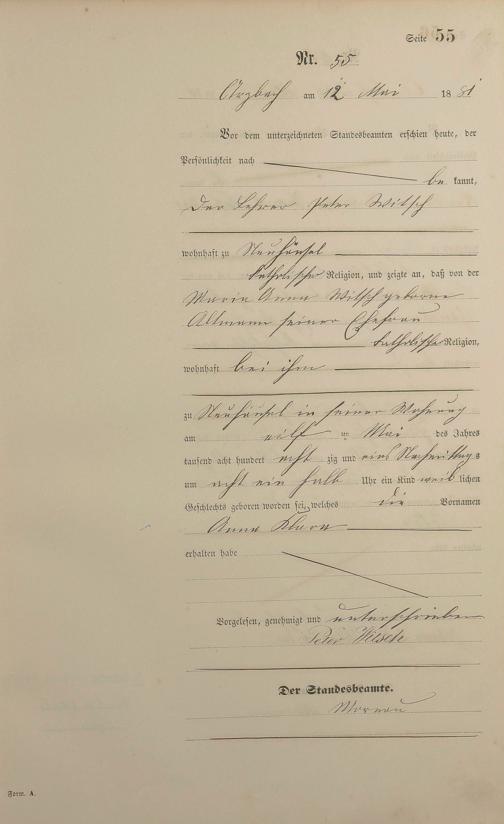 Seite 55
Nr. 55
Arzbach am 12 Mai 1881
Vor dem unterzeichneten Standesbeamten erschien heute, der
Persönlichkeit nach
be kannt,
der Lehrer Peter Witsch
wohnhaft zu Neuhäusel
katholischer Religion, und zeigte an, daß von der
Maria Anna Witsch geborne
Altmann seiner Ehefrau
katholischer Religion,
wohnhaft bei ihm
zu Neuhäusel in seiner Wohnung
am eilf ten Mai des Jahres
tausend acht hundert acht zig und eins Nachmittags
um acht ein halb Uhr ein Kind weib lichen
Geschlechts geboren worden sei, welches die Vornamen
Anna Klara
erhalten habe
Vorgelesen, genehmigt und unterschrieben
Peter Witsch
Der Standesbeamte.
Form. A.